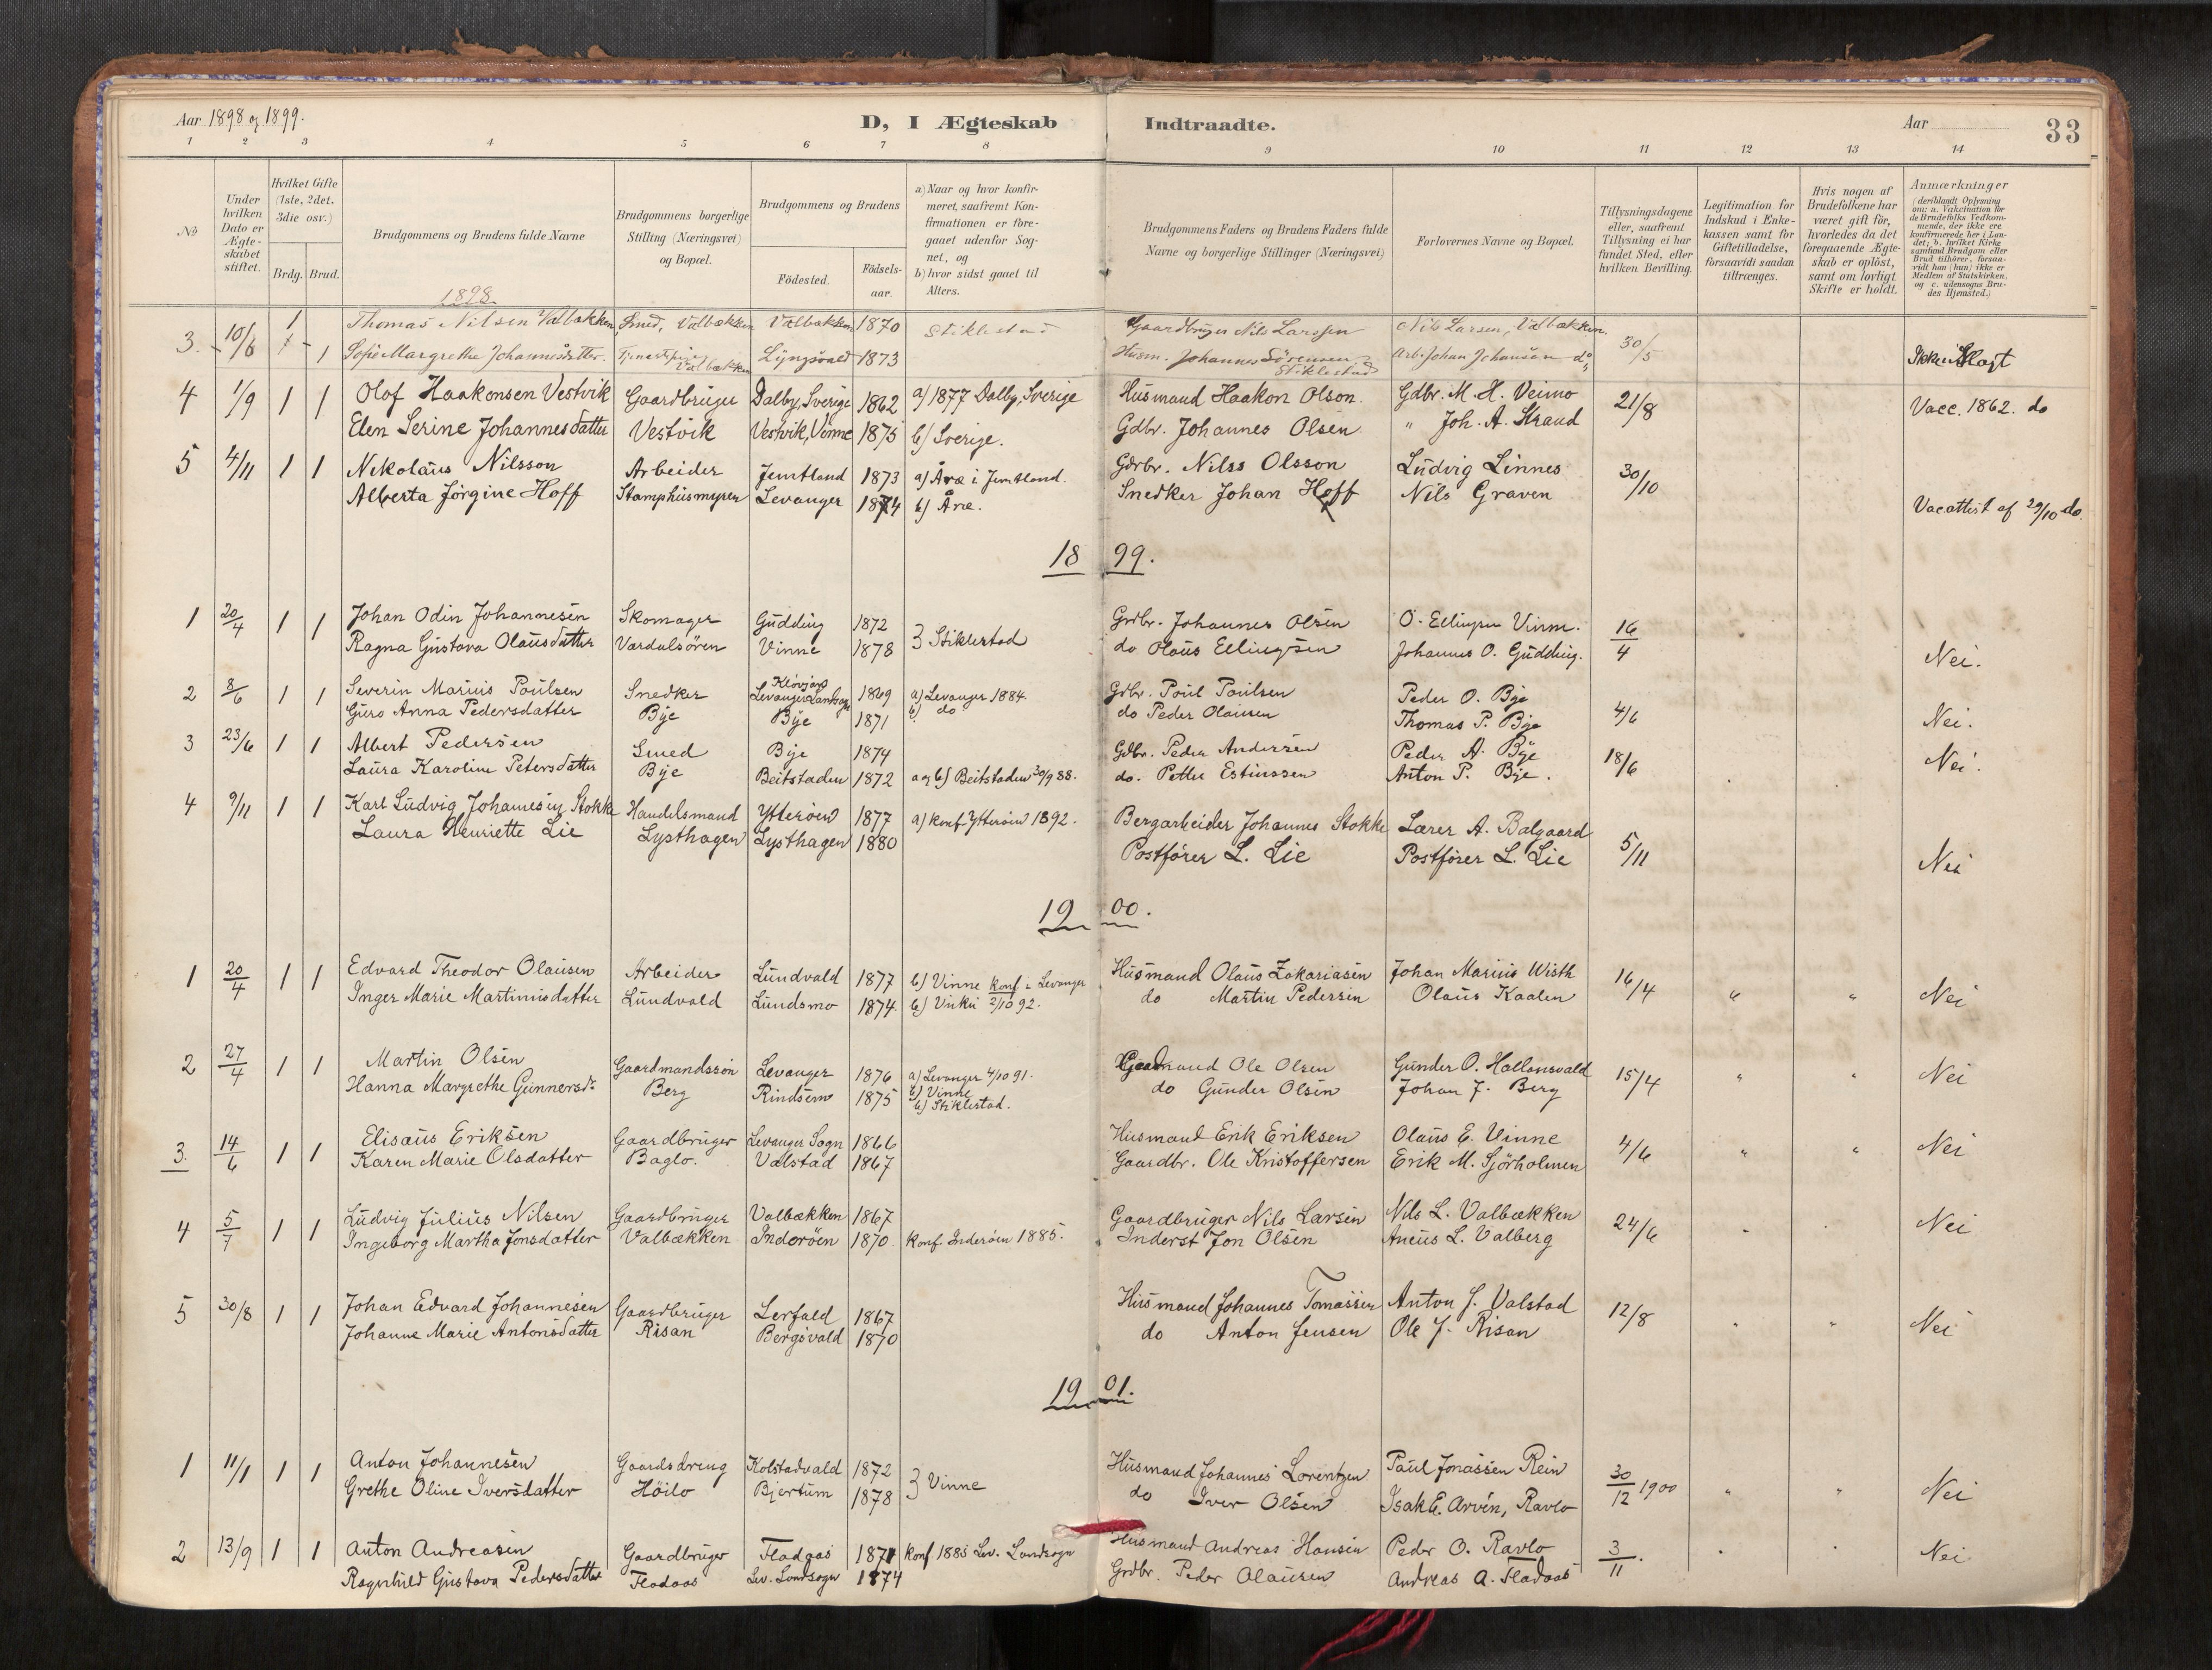 Aar 1898 og 1899.
D, I Ægteskab Indtraadte.
Aar
33
1 2 3 4 5 6 7 8 9 10 11 12 13 14
No
Under hvilken Dato er Ægteskabet stiftet.
Hvilket Gifte (1ste, 2det, 3die osv.)
Brdg. Brud.
Brudgommens og Brudens fulde Navne
Brudgommens borgerlige Stilling (Næringsvei) og Bopæl.
Brudgommens og Brudens
Fødested.
Fødselsaar.
a) Naar og hvor konfirmeret, saafremt Konfirmationen er foregaaet udenfor Sognet, og
b) hvor sidst gaaet til Alters.
Brudgommens Faders og Brudens Faders fulde Navne og borgerlige Stillinger (Næringsvei)
Forlovernes Navne og Bopæl.
Tillysningsdagene eller, saafremt Tillysning ei har fundet Sted, efter hvilken Bevilling.
Legitimation for Indskud i Enkekassen samt for Giftetilladelse, forsaavidt saadan tiltrænges.
Hvis nogen af Brudefolkene har været gift før, hvorledes da det foregaaende Ægteskab er opløst, samt om lovligt Skifte er holdt.
Anmærkninger (deriblandt Oplysning om: a. Vakcination for de Brudefolks Vedkommende, der ikke ere konfirmerede her i Landet; b. hvilket Kirkesamfund Brudgom eller Brud tilhører, forsaavidt han (hun) ikke er Medlem af Statskirken, og c. udensogns Brudes Hjemsted.)
1898
3. 10/6 1 Thomas Nilsen Valbækken Smed, Valbækken Valbækken 1870 Stiklestad Gaardbruger Nils Larssen Nils Larsen, Valbækken. 30/5
1 Sofie Margrethe Johannesdatter. Valbækken Lyngsvald 1873 Husm. Johannes Sörensen Stiklestad Arb. Johan Johansen do
4 1/9 1 1 Olof Haakonsen Vestvik Gaardbruger Dalby, Sverige 1862 a) 1877 Dalby, Sverige Husmand Haakon Olson. Gdbr. M. H. Veimo 21/8 Vacc. 1862. do
Elen Serine Johannesdatter Vestvik Vestvik, Vinne 1875 b) Sverige. Gdbr. Johannes Olsen " Joh. A. Strand
5 4/11 1 1 Nikolaus Nilsson Arbeider Jemtland 1873 a) Åre i Jemtland. Gdrbr. Nilss Olsson Ludvig Linnes 30/10
Alberta Jørgine Hoff Stamphusmyren Levanger 1874 b) Åre. Snedker Johan Hoff Nils Graven Vacattest af 29/10 do.
1899.
1 20/4 1 1 Johan Odin Johannesen Skomager Gudding 1872 } Stiklestad Grdbr. Johannes Olsen O. Ellingsen Vinne. 16/4
Ragna Gustava Olausdatter Værdalsören Vinne 1878 do Olaus Ellingsen Johannes O. Gudding. Nei.
2 8/6 1 1 Severin Marius Poulsen Snedker Levanger Landsogn 1869 a) Levanger 1884. Grdbr. Poul Poulsen Peder O. Bye 4/6
Guro Anna Pedersdatter Bye Bye 1871 b) do do Peder Olausen Thomas P. Bye Nei.
3 23/6 1 1 Albert Pedersen Smed Bye 1874 Gdbr. Peder Andersen Peder A. Bye 18/6 Nei.
Laura Karoline Petersdatter Bye Beitstaden 1872 a og b) Beitstaden 30/9 88. do. Petter Estinssen Anton P. Bye.
4 9/11 1 1 Karl Ludvig Johannesen Stokke Handelsmand Ytterøen 1877 a) konf. Ytterøen 1892. Bergarbeider Johannes Stokke Lærer A. Balgaard 5/11
Laura Henriette Lie Lysthagen Lysthagen 1880 Postfører L. Lie Postfører L. Lie Nei
1900.
1 20/4 1 1 Edvard Theodor Olausen Arbeider Lundvald 1877 b) Vinne konf i Levanger Husmand Olaus Zakariasen Johan Marius Wisth 16/4
Inger Marie Martinusdatter Lundvald Lundsmo 1874 2/10 92. do Martin Pedersen Olaus Kaalen " " Nei
2 27/4 1 1 Martin Olsen Gaardmandssön Levanger 1876 a) Levanger 4/10 91. Gaardmand Ole Olsen Gunder O. Hallanvald 15/4 " " Nei
Hanna Margrethe Gunnersdr Berg Rindsem 1875 b) Vinne b) Stiklestad. do Gunder Olsen Johan J. Berg
3. 14/6 1 1 Elisæus Eriksen Gaardbruger Levanger Sogn 1866 Husmand Erik Eriksen Olaus E. Vinne 4/6 " " Nei
Karen Marie Olsdatter Baglo. Valstad 1867 Gaardbr. Ole Kristoffersen Erik M. Sjörholmen
4 5/7 1 1 Ludvig Julius Nilsen Gaardbruger Valbækken 1867 Gaardbruger Nils Larsen Nils L. Valbækken 24/6 Nei
Ingeborg Martha Jonsdatter Valbækken Inderøen 1870 konf Inderøen 1885. Inderst Jon Olsen Aneus L. Valberg
5 30/8 1 1 Johan Edvard Johannesen Gaardbruger Lerfald 1867 Husmand Johannes Tomassen Anton J. Valstad 12/8 " " Nei
Johanne Marie Antonsdatter Risan Bergsvald 1870 do Anton Jensen Ole J. Risan
1901.
1 11/1 1 1 Anton Johannesen Gaardsdreng Kolstadvald 1872 } Vinne Husmand Johannes Lorentzen Paul Jonassen Rein 30/12 1900 " " Nei
Grethe Oline Iversdatter Höilo Bjertum 1878 do Iver Olsen Isak E. Arven, Ravlo
2 13/9 1 1 Anton Andreasen Gaardbruger Fladaas 1871 konf 1885 Lev. Landsogn Husmand Andreas Hansen Peder O. Ravlo 3/11. Nei
Ragnhild Gustava Pedersdatter Fladaas Lev. Landsogn 1874 Grdbr. Peder Olausen Andreas A. Fladaas